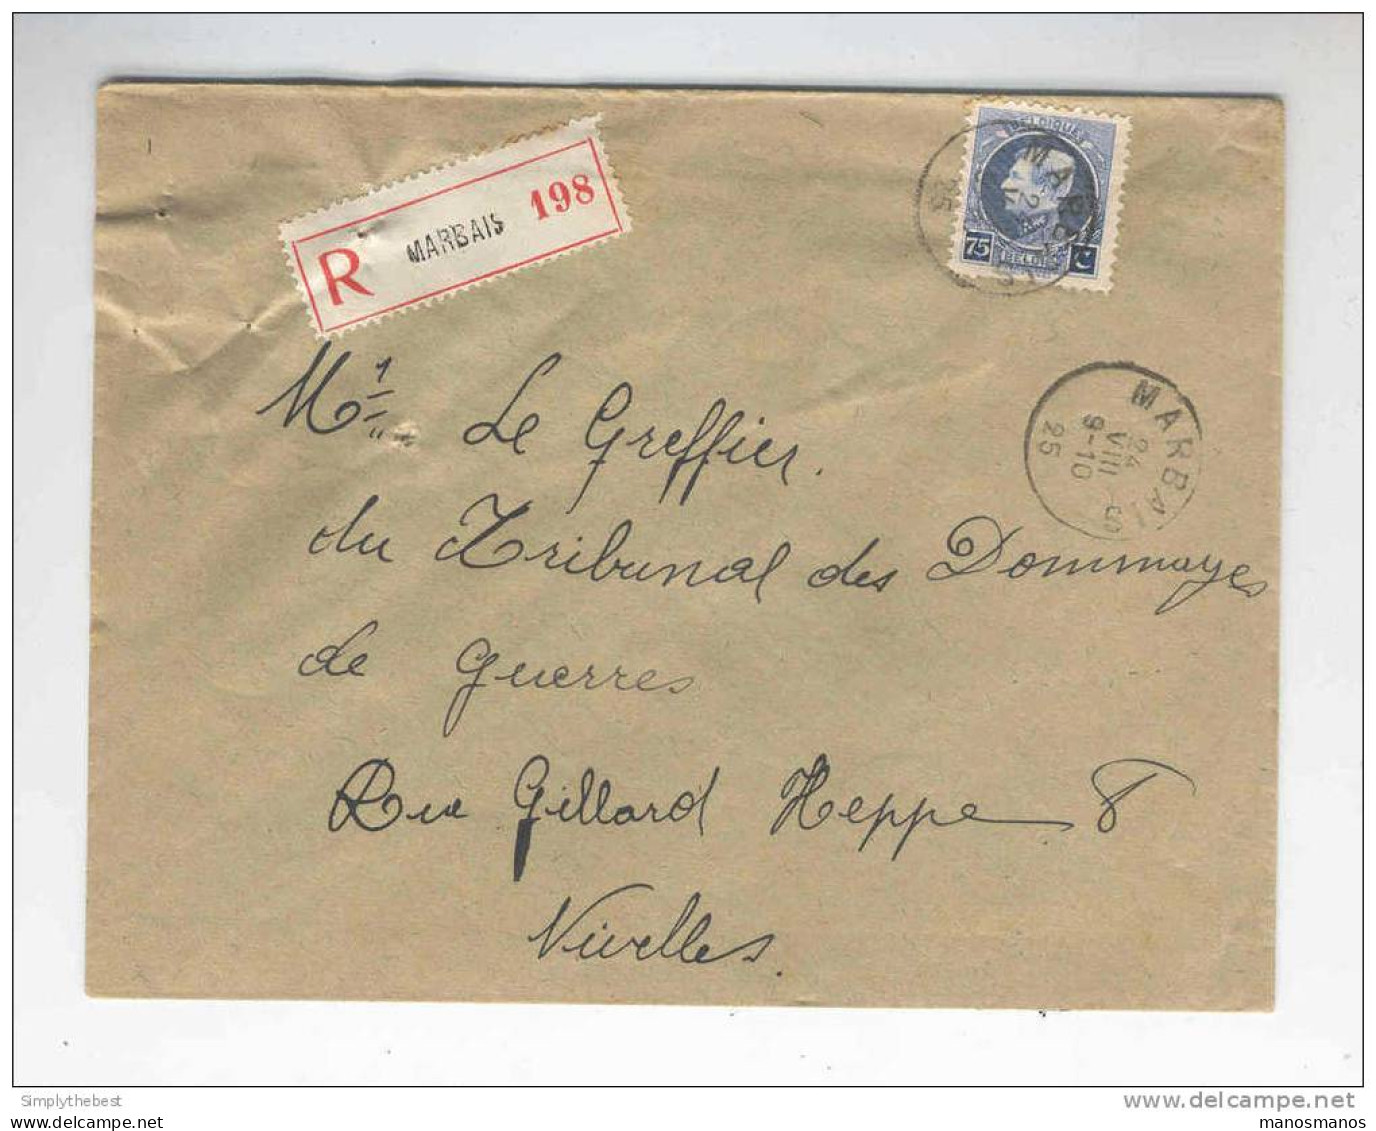 R MARBAIS 198
BELGIQUE
75 C
BELGIË
MARBAIS
25
MARBAIS
24
VIII
9-10
25
Mr Le Greffier.
du Tribunal des Dommages
de guerres
Rue Gillard Heppe 8
Nivelles.
Simplythebest
www.delcampe.net
manosmanos